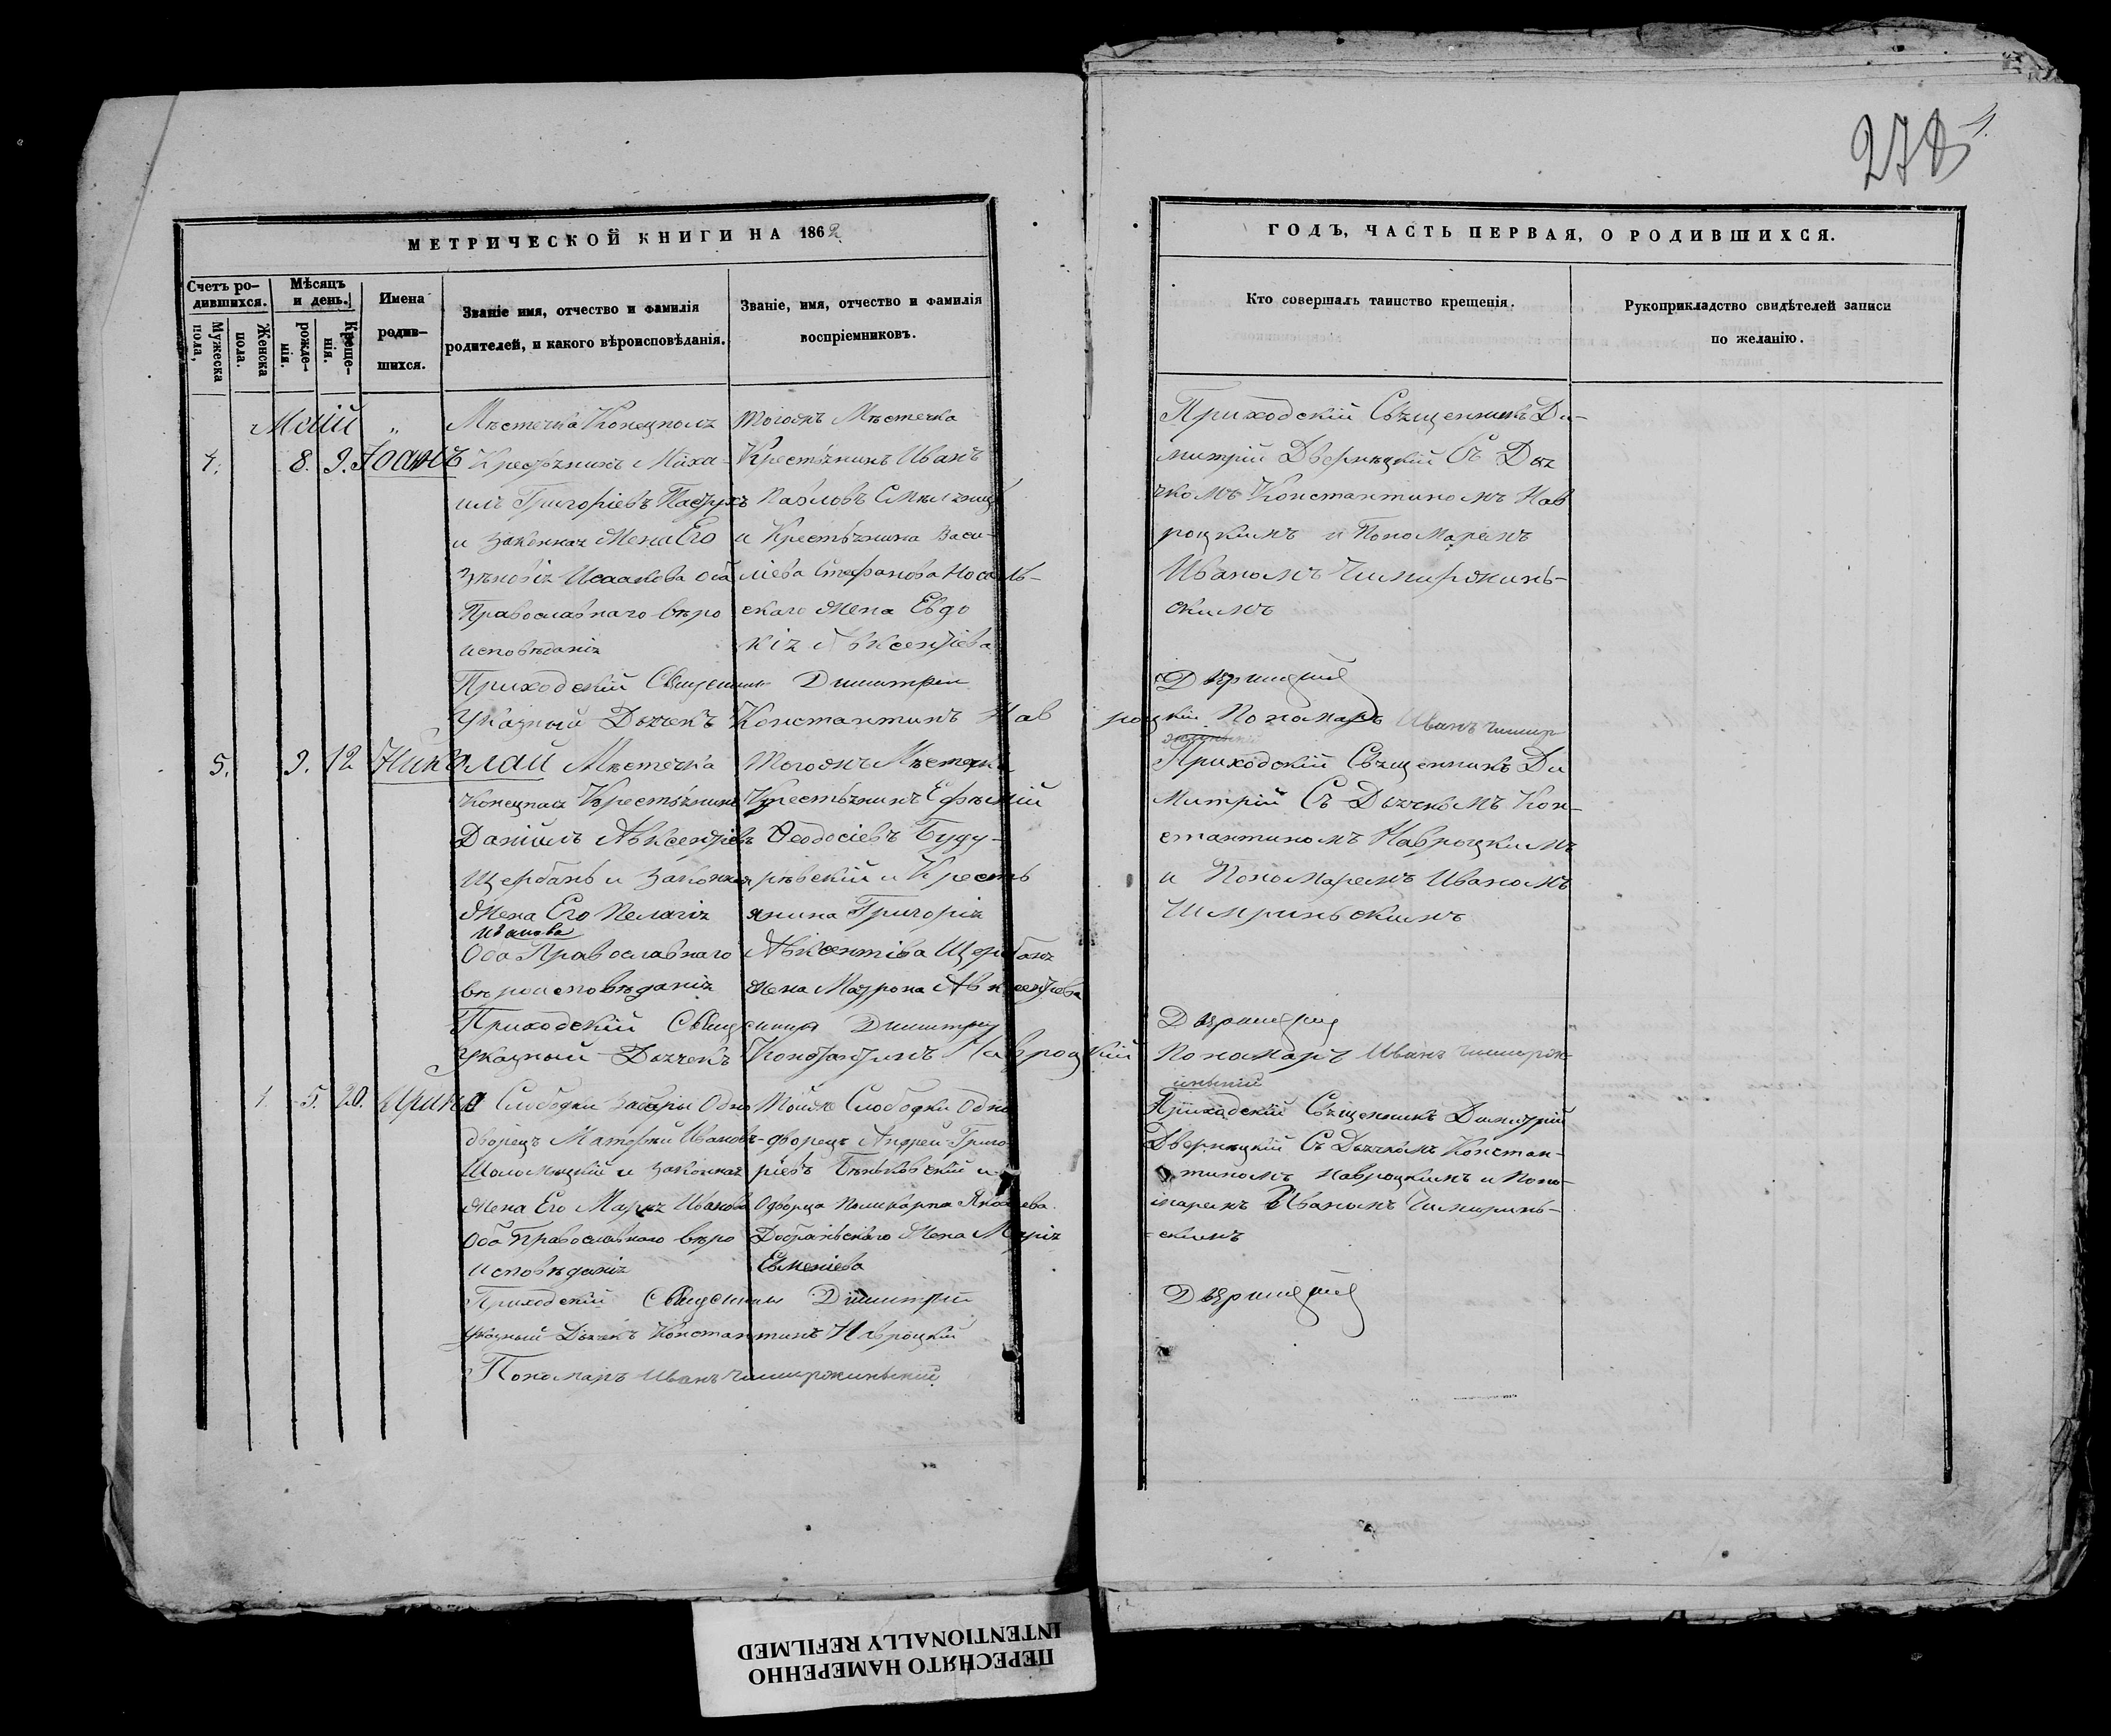 278
МЕТРИЧЕСКОЙ КНИГИ НА 1862
ГОДЪ, ЧАСТЬ ПЕРВАЯ, О РОДИВШИХСЯ.
Счетъ ро-
дившихся.
Мужеска
пола,
Женска
пола.
Мѣсяцъ
и день.
рожде-
нія.
Креще-
нія.
Имена
родив-
шихся.
Званіе имя, отчество и фамилія
родителей, и какого вѣроисповѣданія.
Званіе, имя, отчество и фамилія
воспріемниковъ.
Кто совершалъ таинство крещенія.
Рукоприкладство свидѣтелей записи
по желанію.
Маій
4. 8. 9. Іоаннъ
Мѣстечка Конецпола
Крестьянинъ Миха-
илъ Григоріевъ Пастухъ
и законная Жена Его
Исаакова оба
Православнаго вѣро
исповѣданія
Тогожъ Мѣстечка
Крестьянинъ Иванъ
Павловъ
и Крестьянина Васи-
ліева Стефанова Носаль-
скаго Жена Евдо
кія Авксентіева
Приходскій Священникъ Ди-
митрій Дверницкій Съ Дья
чкомъ Константиномъ Нав
роцкимъ и Пономаремъ
Иваномъ Чимиржинь-
скимъ
Приходскій Священникъ Димитрій Дверницкій
Указный Дьячекъ Константинъ Навроцкій Пономарь Иванъ Чимир
жинскій
5. 9. 12 Николай
Мѣстечка
Конецпола Крестьянинъ
Даніилъ Авксентіевъ
Щербань и Законная
Жена Его Пелагія
Иванова
Оба Православнаго
вѣроисповѣданія
Тогожъ Мѣстечка
Крестьянинъ Ефимій
Ѳеодосіевъ Буду-
рѣвскій и Кресть
янина Григорія
Авксентіева Щербаня
Жена Матрона Авксентіева
Приходскій Священникъ Ди
митрій Съ Дьячкомъ Кон-
стантиномъ Навроцкимъ
и Пономаремъ Иваномъ
Приходскій Священникъ Димитрій Дверницкій
Указный Дьячекъ Константинъ Навроцкій Пономарь Иванъ Чимирж
инскій
1. 5. 20. Ирина
Слободки Одно
дворецъ Матфей Ивановъ
и Законная
Жена Его Марія Иванова
Оба Православнаго вѣро
исповѣданія
Тойже Слободки Одно
-дворецъ Андрей Григо
ріевъ Бѣньковскій и
Одворца Поликарпа Яковлева
Добраньскаго Жена Марія
Евменіева
Приходскій Священникъ Димитрій
Дверницкій Съ Дьячкомъ Констан-
тиномъ Навроцкимъ и Поно-
маремъ Иваномъ Чимиринь-
-скимъ
Приходскій Священникъ Димитрій Дверницкій
Указный Дьячекъ Константинъ Навроцкій
Пономарь Иванъ Чимиржинскій
ПЕРЕСНЯТО НАМЕРЕННО
INTENTIONALLY REFILMED